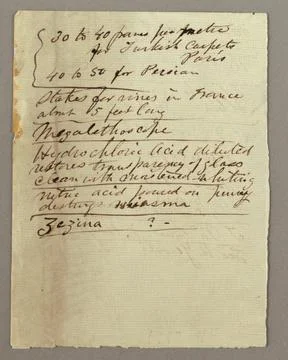 30 to 40 francs per metre
for Turkish Carpets
Paris
40 to 50 for Persian
Stakes for vines in France
about 5 feet long
Megalethoscope
Hydrochloric Acid diluted
restores transparency of glass
clean with moistened whiting
Nitric acid poured on
destroys miasma
Zezina ? -